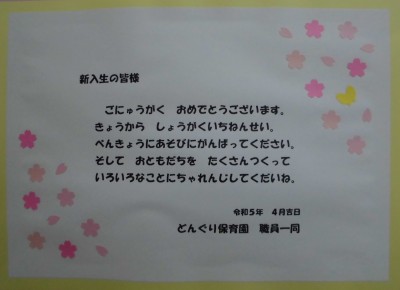 新入生の皆様
ごにゅうがく　おめでとうございます。
きょうから　しょうがくいちねんせい。
べんきょうにあそびにがんばってください。
そして　おともだちを　たくさんつくって
いろいろなことにちゃれんじしてくだいね。
令和５年　４月吉日
どんぐり保育園　職員一同